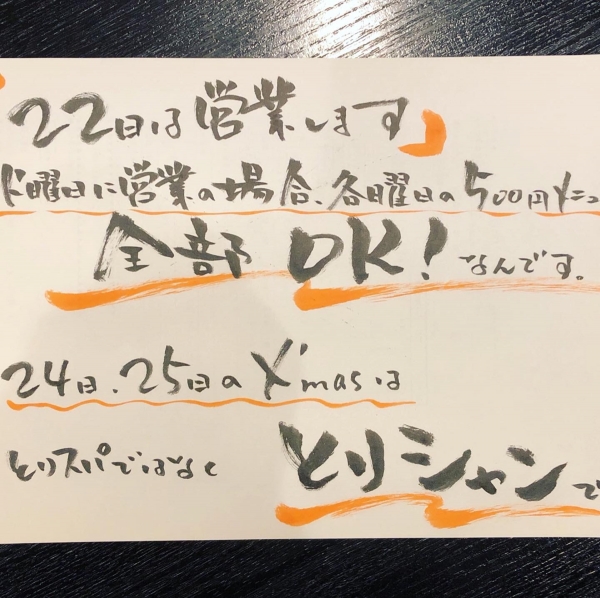 「22日は営業します」
水曜日に営業の場合、各曜日の500円メニュ
全部OK!なんです。
24日、25日のX'masは
とりスパではなく
とりシャンで